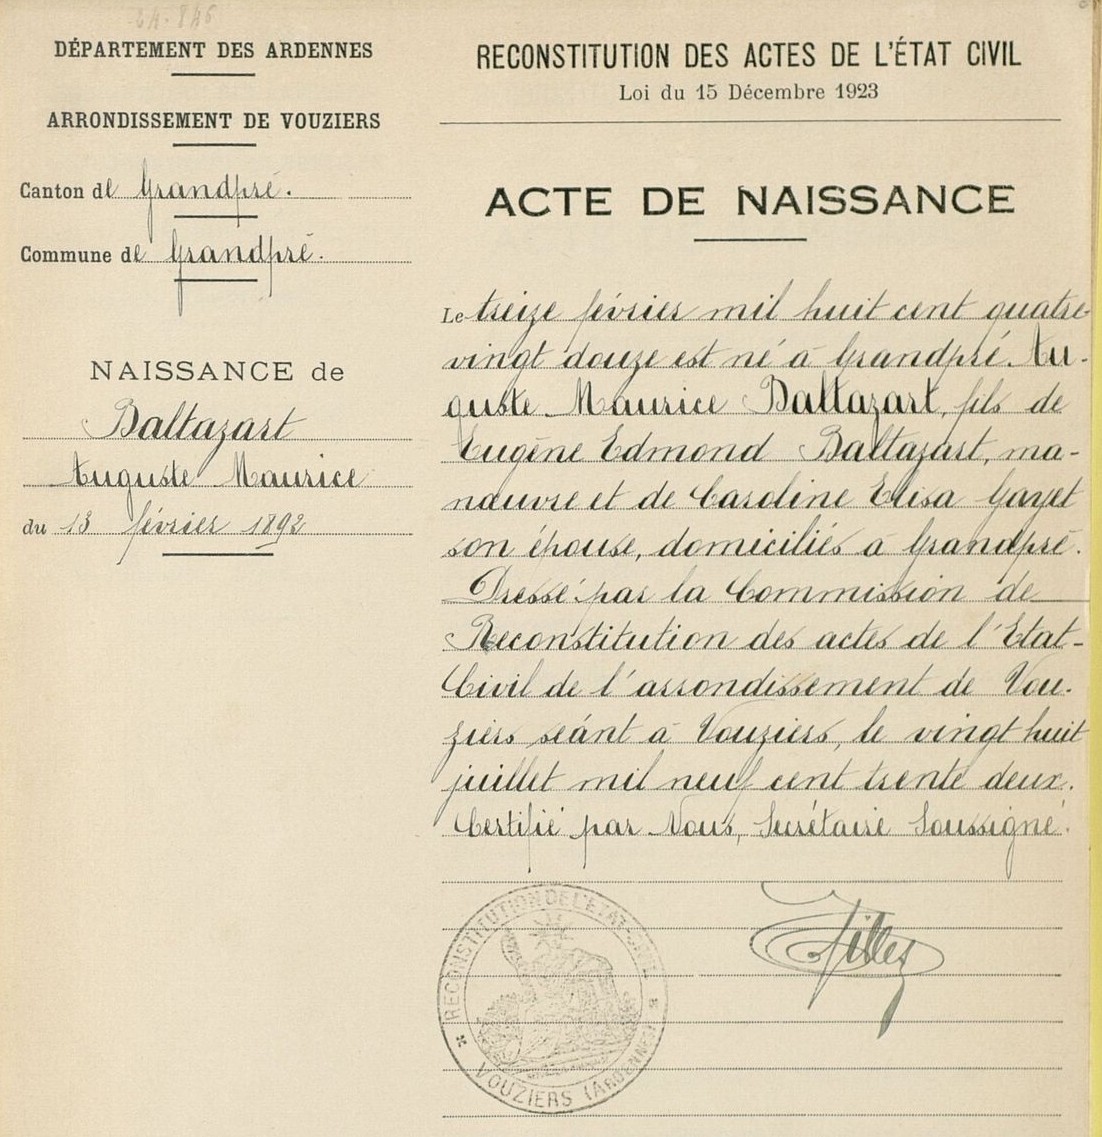 DÉPARTEMENT DES ARDENNES
ARRONDISSEMENT DE VOUZIERS
Canton de Grandpré.
Commune de Grandpré.
NAISSANCE de
Baltazart
Auguste Maurice
du 13 février 1892
RECONSTITUTION DES ACTES DE L'ÉTAT CIVIL
Loi du 15 Décembre 1923
ACTE DE NAISSANCE
Le treize février mil huit cent quatre-
vingt douze est né à Grandpré. Au-
guste Maurice Baltazart, fils de
Eugène Edmond Baltazart, ma-
nœuvre et de Caroline Elisa Gayet
son épouse, domiciliés à Grandpré.
Dressé par la Commission de
Reconstitution des actes de l'Etat-
Civil de l'arrondissement de Vou-
ziers séant à Vouziers, le vingt huit
juillet mil neuf cent trente deux.
Certifié par Nous, Secrétaire Soussigné.
RECONSTITUTION DE L'ÉTAT-CIVIL
VOUZIERS (ARDENNES)